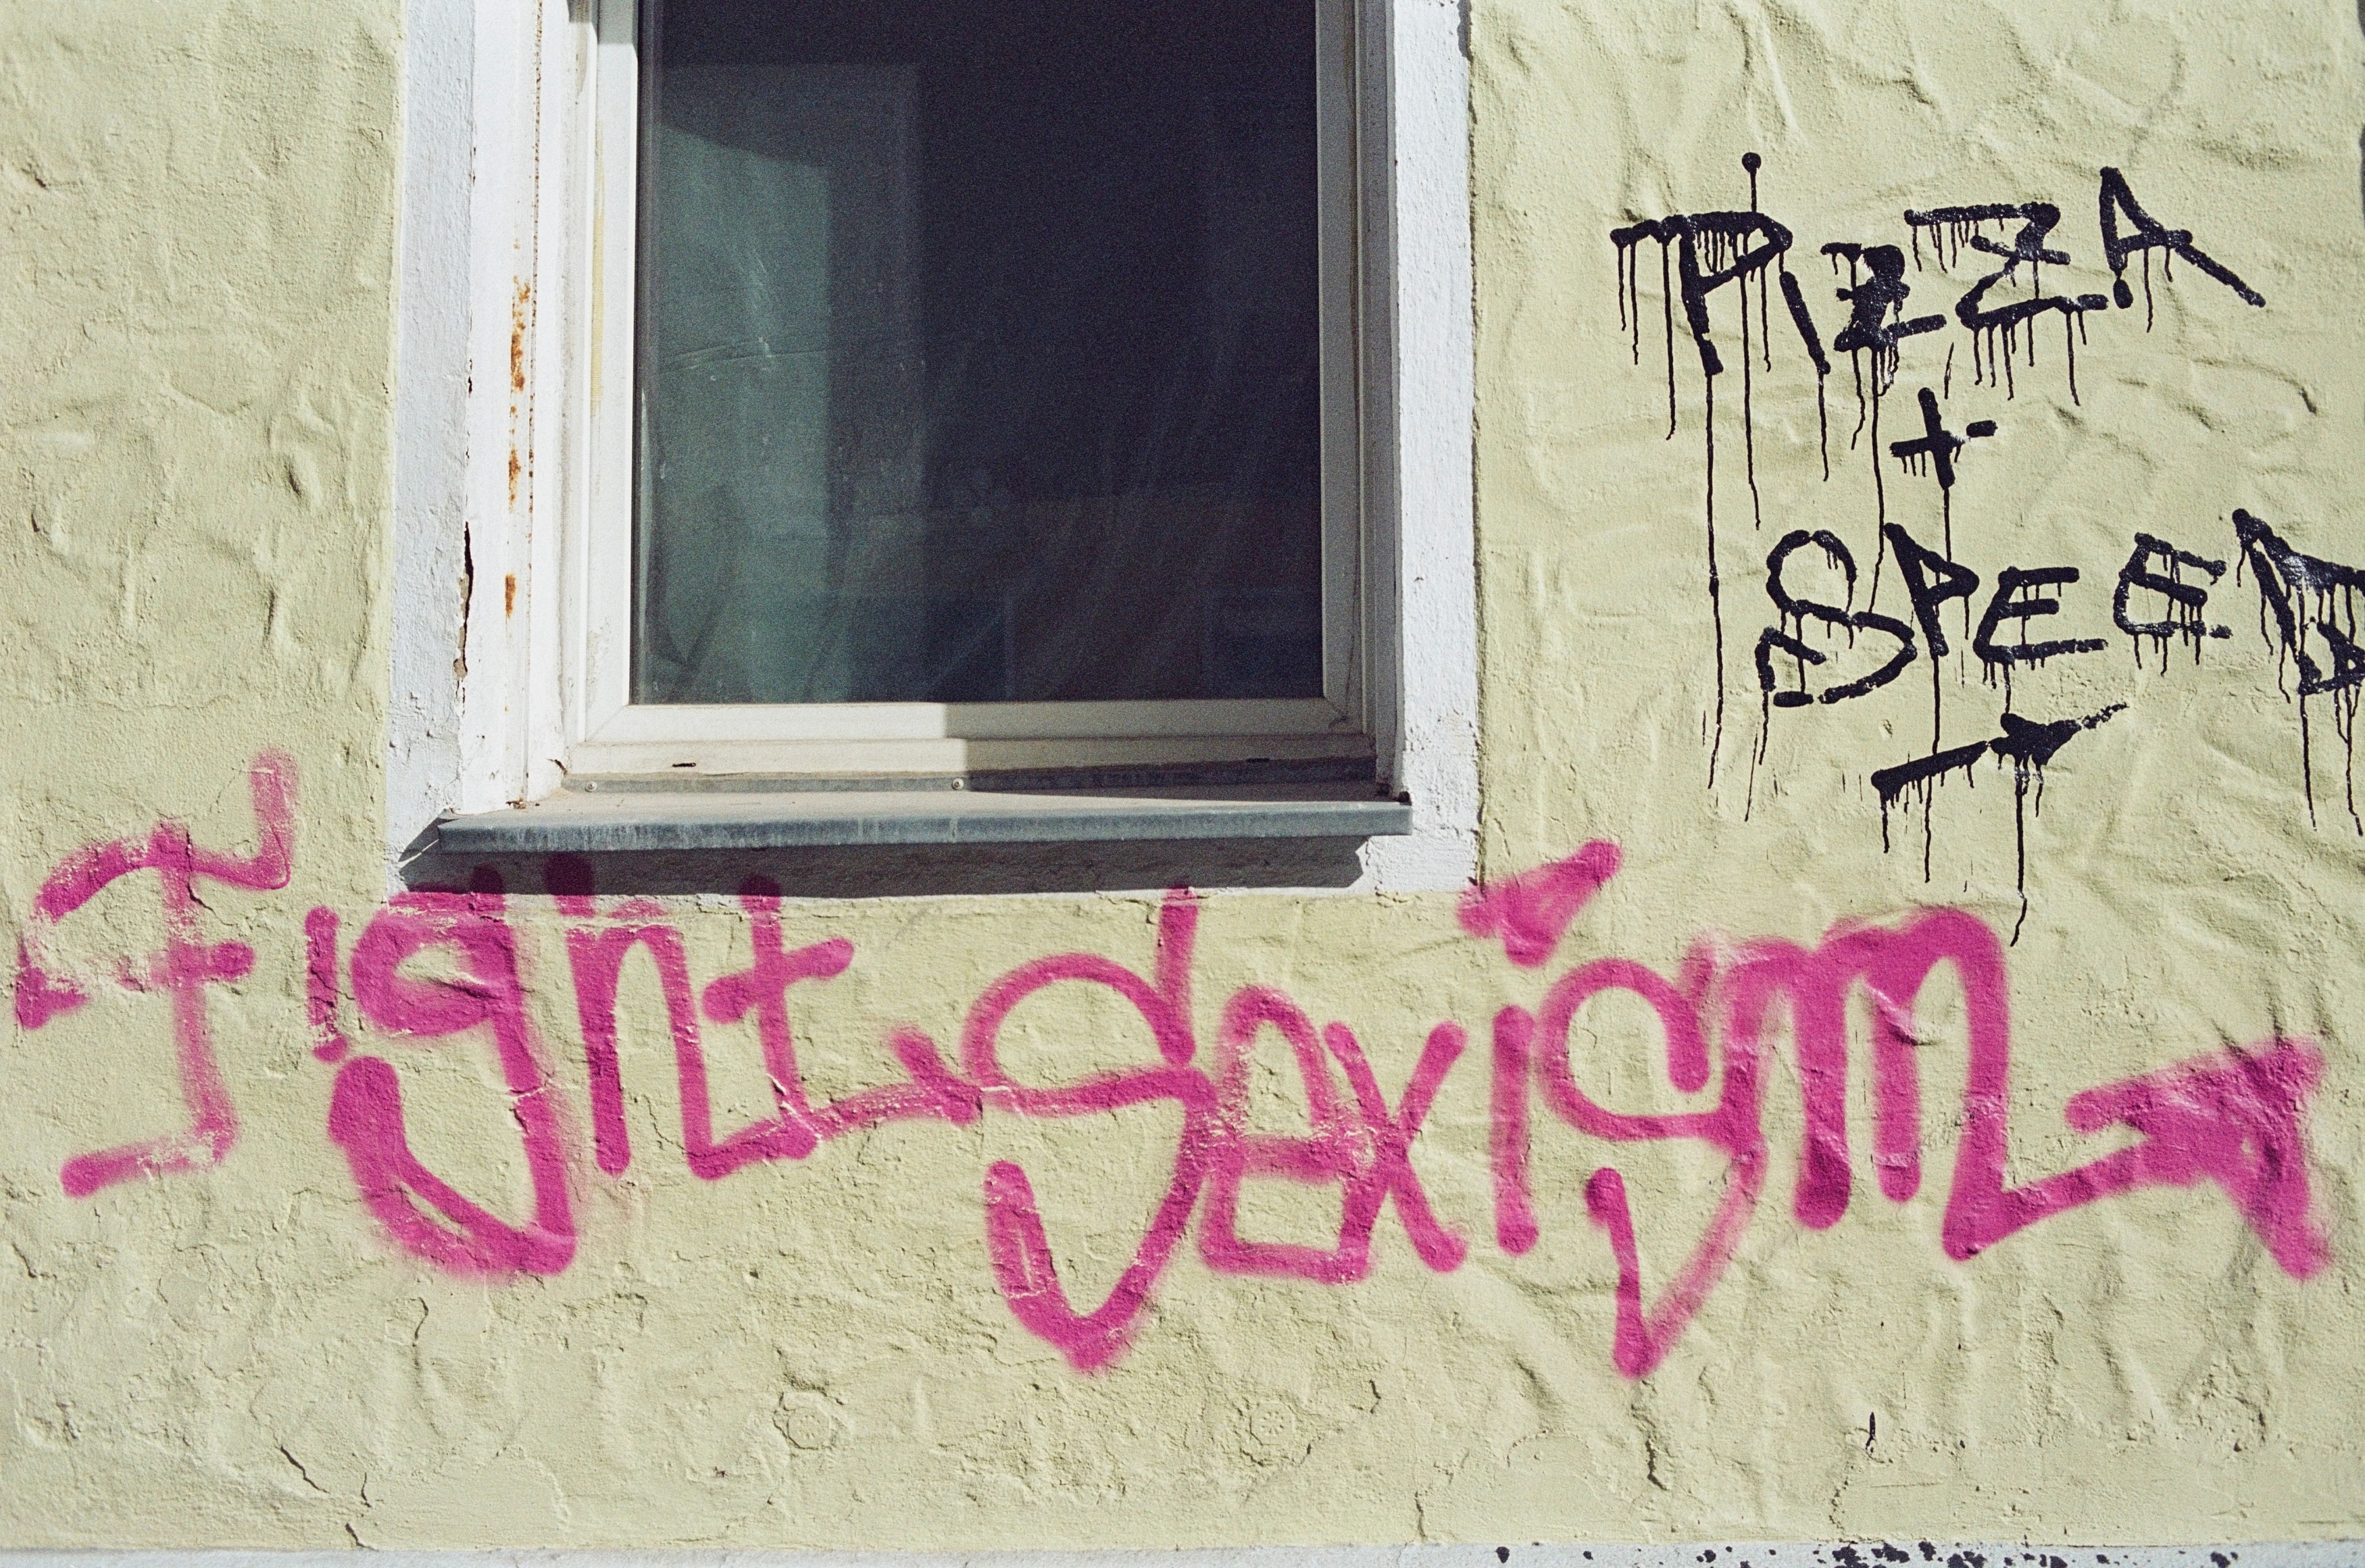 PIZZA
+
SPEED
Fight Sexism